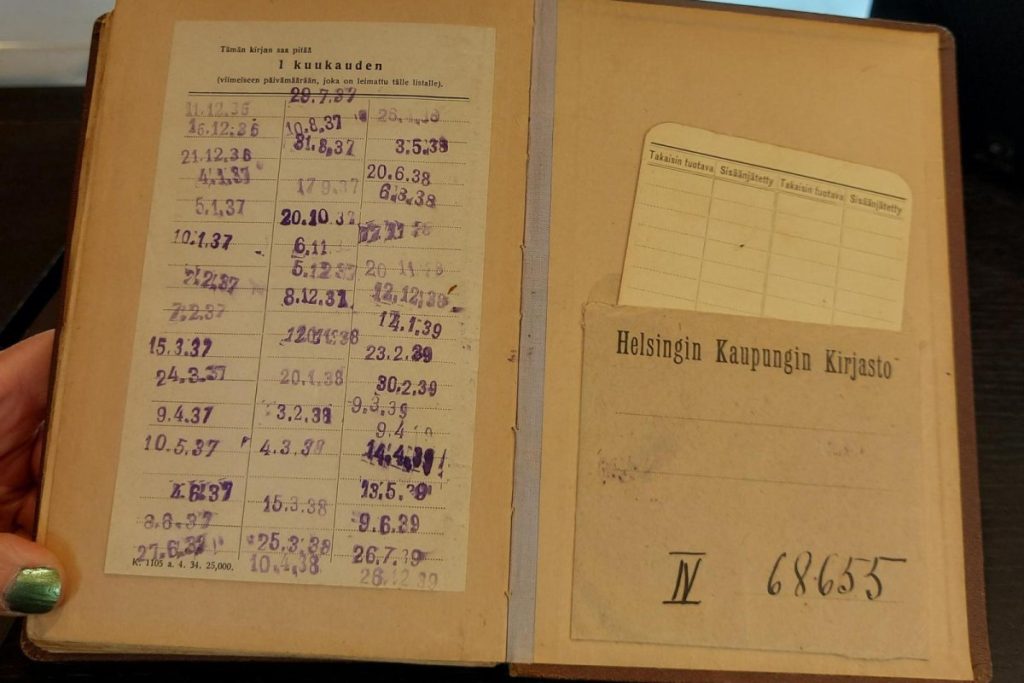 Tämän kirjan saa pitää
1 kuukauden
(viimeiseen päivämäärään, joka on leimattu tälle listalle).
11.12.36
16.12.36
21.12.36
4.1.37
5.1.37
10.1.37
2.2.37
7.2.37
15.3.37
24.3.37
9.4.37
10.5.37
4.6.37
8.6.37
27.6.37
K. 1105 a. 4. 34. 25,000.
29.7.37
10.8.37
31.8.37
17 9.37
20.10.37
6.11
5.12.37
8.12.37
20.1.38
3.2.38
4.3.38
15.3.38
25.3.38
10.4.38
3.5.38
20.6.38
6.8.38
20 11
12.12.38
14.1.39
23.2.39
30.2.39
9.3.39
9.4
14.4.39
13.5.39
9.6.39
26.7.39
28.12.39
Takaisin tuotava Sisäänjätetty Takaisin tuotava Sisäänjätetty
Helsingin Kaupungin Kirjasto
IV 68655